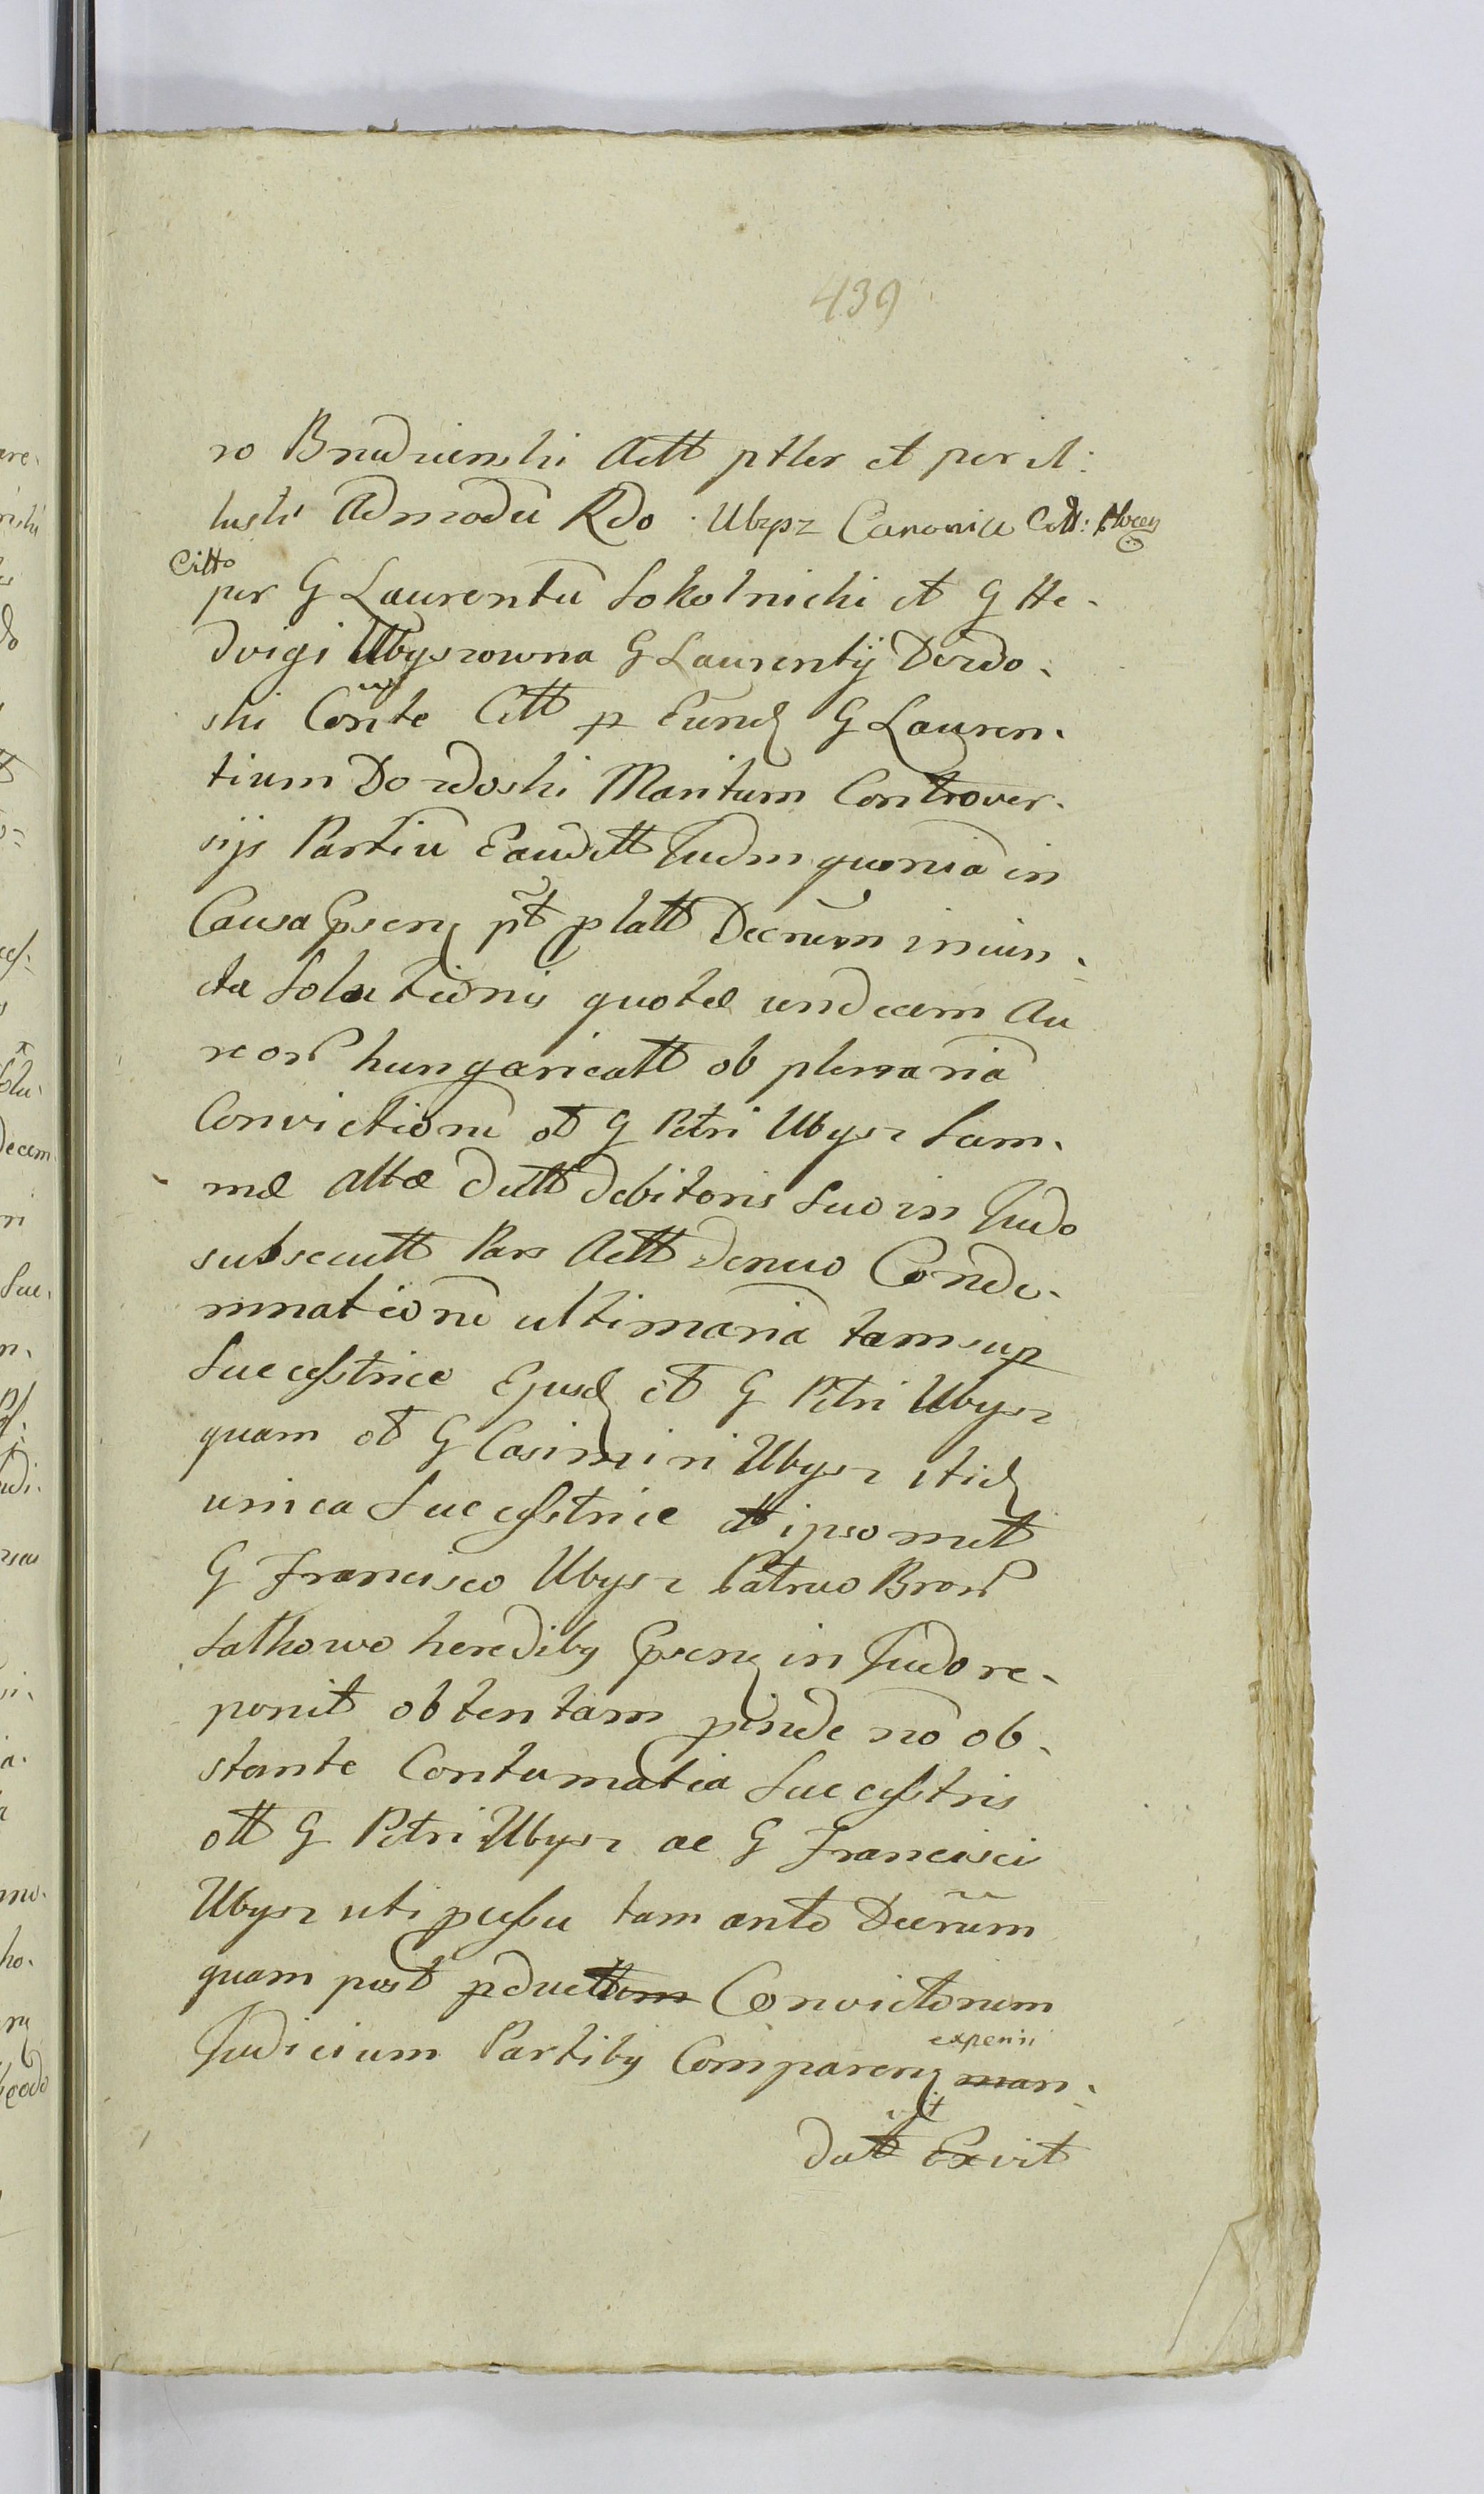 439
ro Brudzienski Actt ptler et per il:
lustri Admodū Rdo Ubysz Canonico Catt:
Citto
per G Laurentiū Sokolnicki et G He-
dvigi Ubyszowna G Laurentij Dordo-
ski Conte Citt p Eund G Lauren-
tium Dordoski Maritum Controver-
sijs Partiū Exaudtt Judm quoniā in
Causa Gpsenę pt p latt Decrūm iniun-
cta Solutionis quotæ undecem Au
reor hungaricatt ob plenariā
Convictionē ot G Petri Ubysz Sum-
mæ attæ dutt debitoris Suo in Judo
subsecutt Pars Actt denuo Conde-
mnationē ultimariā tam sup
Successtrice Ejusd ot G Petri Ubysz
quam ot G Casimiri Ubysz itid
unica Successtrice et ipsomet
G Francisco Ubysz Patruo Bror
Satkowo heredibꝫ Gpsenę in Judo re-
ponit obtentam pinde nō ob-
stante Contumatia Successtris
ott G Petri Ubysz ac G Francisci
Ubysz uti pcussu tam ante Decrūm
quam post pductam Convictorum
Judicium Partibꝫ Comparenę man-
experiri
datt Exivit